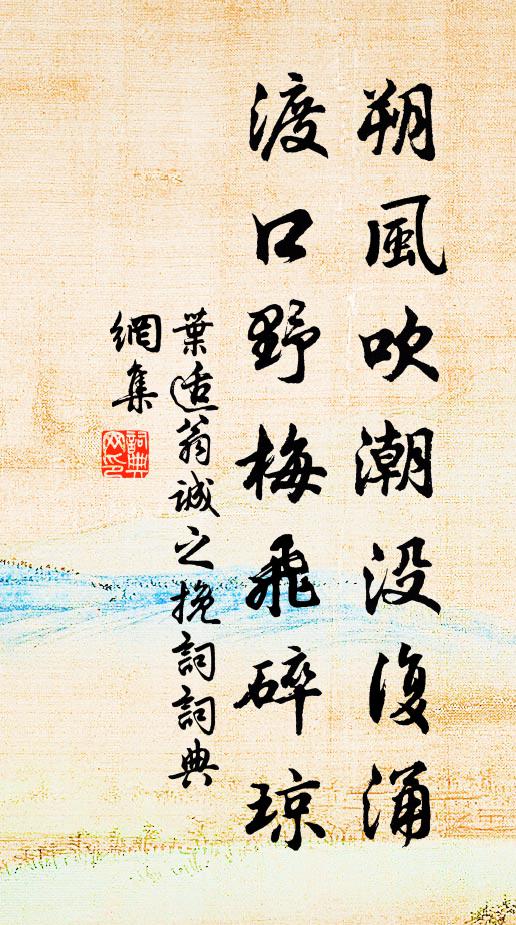 朔風吹潮没復涌
渡口野梅飛碎瓊
葉適翁誠之挽詞詞典
網集
詞典
网印